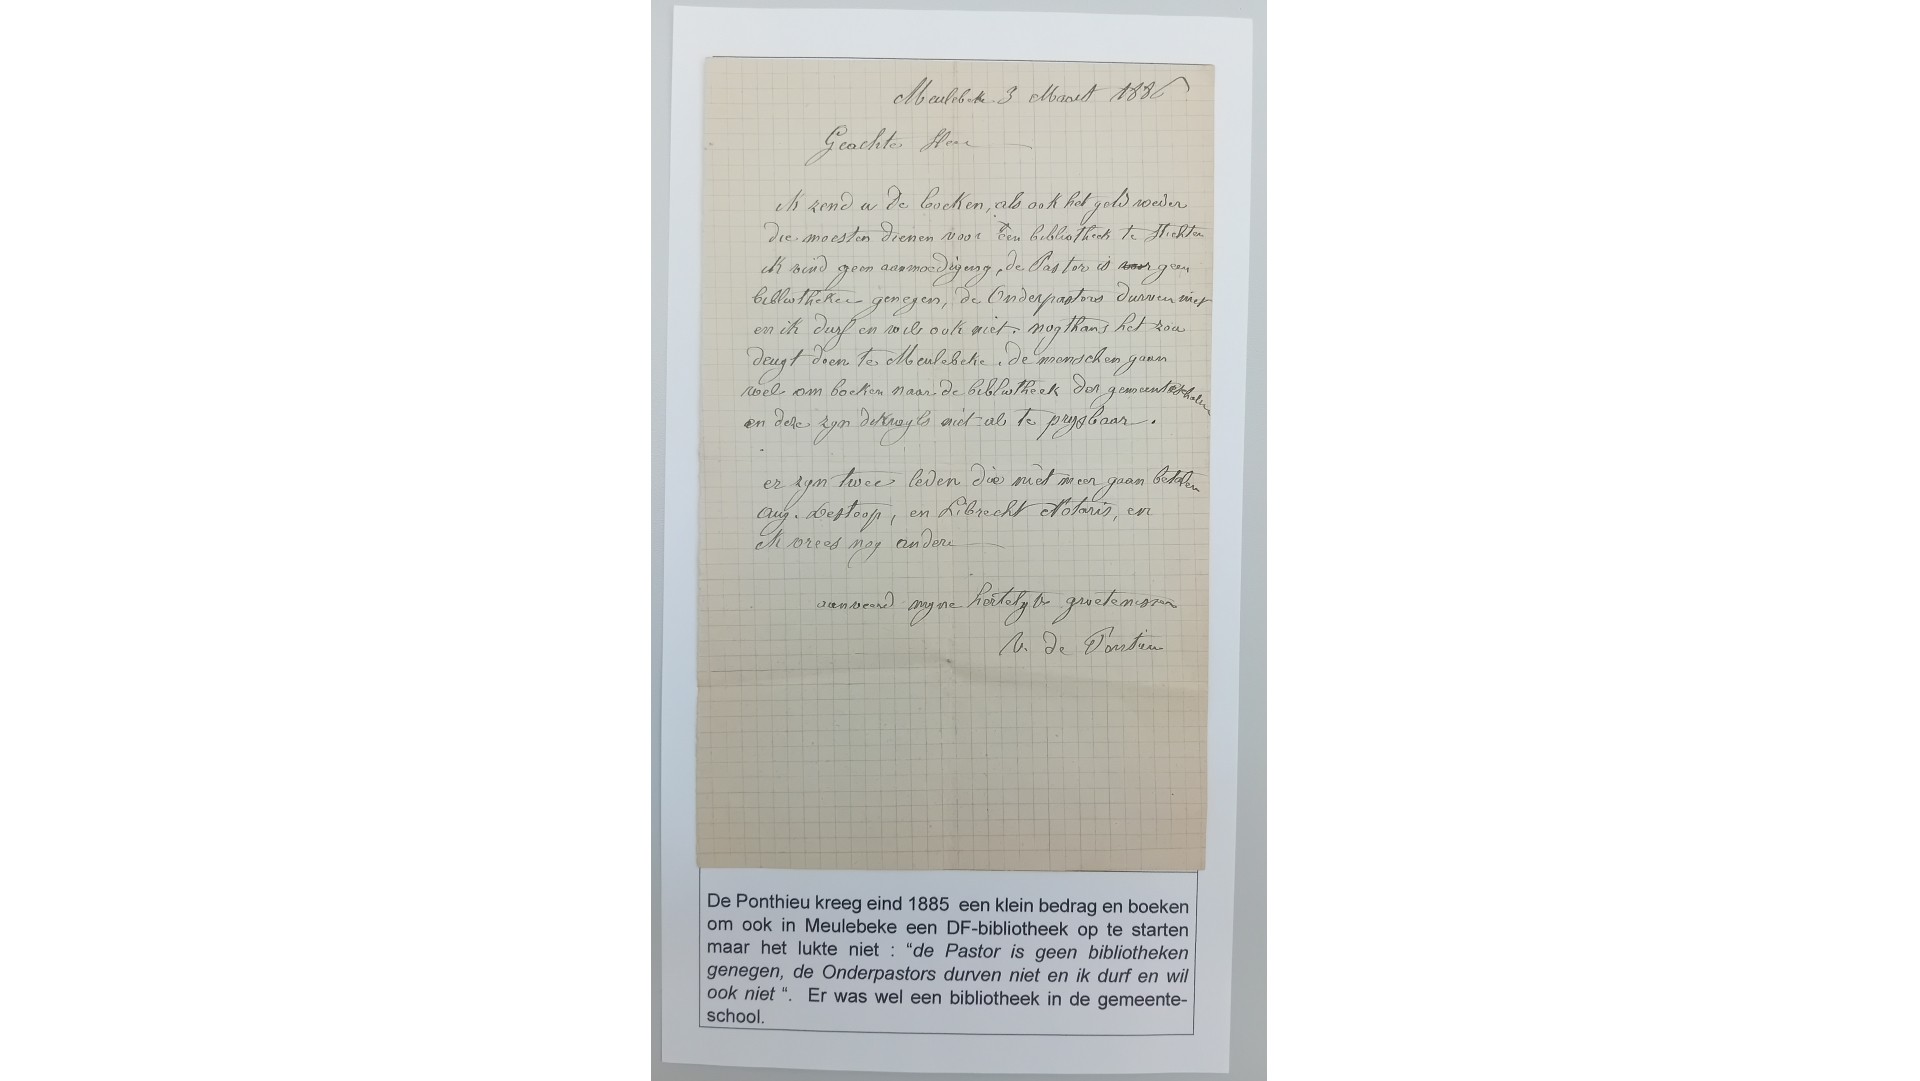 Meulebeke 3 Maart 1886
Geachte Heer
ik zend u de boeken, als ook het geld weder
die moesten dienen voor een bibliotheek te stichten
ik vind geen aanmoediging, de Pastor is geen
bibliotheken genegen, de Onderpastors durven niet
en ik durf en wil ook niet. nogthans het zou
deugt doen te Meulebeke. de menschen gaan
wel om boeken naar de bibliotheek der gemeentescholen
en deze zyn dikwyls niet al te prysbaar.
er zyn twee leden die niet meer gaan betalen
Aug. Destoop, en Librecht Notaris, en
ik vrees nog andere
aanveerd myne hertelyke groetenissen
V. de Pontieu
De Ponthieu kreeg eind 1885 een klein bedrag en boeken
om ook in Meulebeke een DF-bibliotheek op te starten
maar het lukte niet : “de Pastor is geen bibliotheken
genegen, de Onderpastors durven niet en ik durf en wil
ook niet “. Er was wel een bibliotheek in de gemeente-
school.